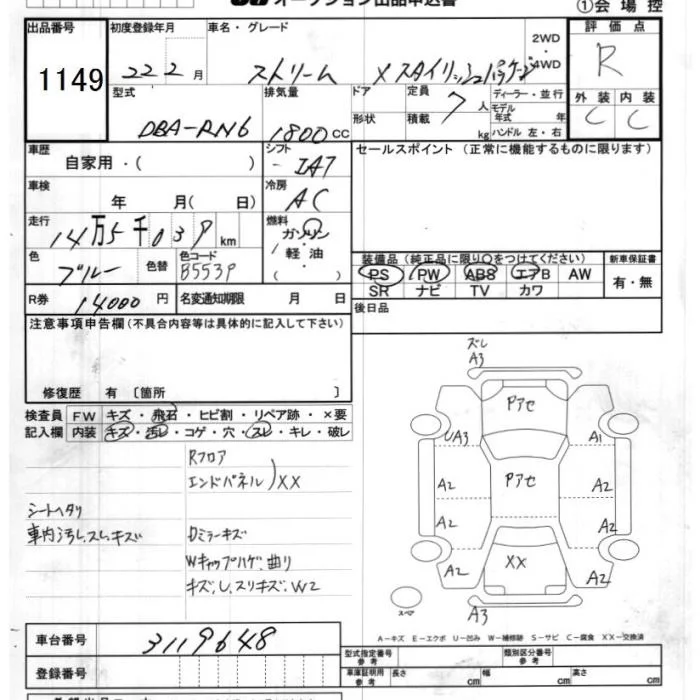 オークション出品申込書
①会場控
出品番号 初度登録年月 車名・グレード 評価点
1149 22 2月 ストリーム X スタイリッシュパッケージ 2WD・4WD R
型式 排気量 ドア 定員 7人 ディーラー・並行 外装 内装
DBA-RN6 1800cc 形状 積載 kg モデル年式 年 ハンドル 左・右 C C
車歴 シフト セールスポイント（正常に機能するものに限ります）
自家用・（ ） IAT
車検 冷房
年 月（ 日） AC
走行 燃料
14万5千039km ガソリン
色 色替 色コード 軽油
ブルー B553P （ ）
装備品（純正品に限り○をつけてください） 新車保証書
PS PW ABS エアB AW 有・無
SR ナビ TV カワ
R券 14000円 名変通知期限 月 日
後日品
注意事項申告欄（不具合内容等は具体的に記入して下さい）
修復歴 有〔箇所 〕
検査員 FW キズ・飛石・ヒビ割・リペア跡・×要
記入欄 内装 キズ・汚レ・コゲ・穴・スレ・キレ・破レ
Rフロア
エンドパネル）XX
シートヘタリ
車内汚レ,スレ,キズ
Dミラーキズ
Wキャップハゲ,曲り
キズ,U,スリキズ,W2
ズレ
A3
Pアセ
UA3 A1
A2 Pアセ A2
A2 A2
A2 XX A2
スペア A3
A－キズ E－エクボ U－凹み W－補修跡 S－サビ C－腐食 XX－交換済
車台番号 3119648
登録番号
型式指定番号 参考 類別区分番号 参考
車庫証明用 参考 長さ cm 幅 cm 高さ cm